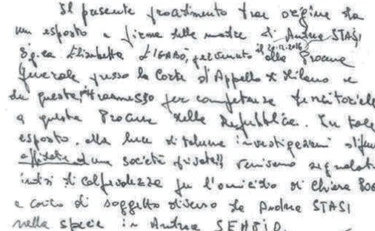 Il presente procedimento trae origine da
un esposto a firma della madre di Andrea STASI
Sig.ra Elisabetta LIGABÒ, presentato alla Procura
il 20.12.2016
Generale presso la Corte d'Appello di Milano e
da questa trasmesso per competenza territoriale
a questa Procura della Repubblica. In tale
esposto, alla luce di talune investigazioni difen
affidate ad una società privata venivano segnalati
indizi di colpevolezza per l'omicidio di Chiara Po
a carico di soggetto diverso da Andrea STASI
nella specie in Andrea SEMPIO.